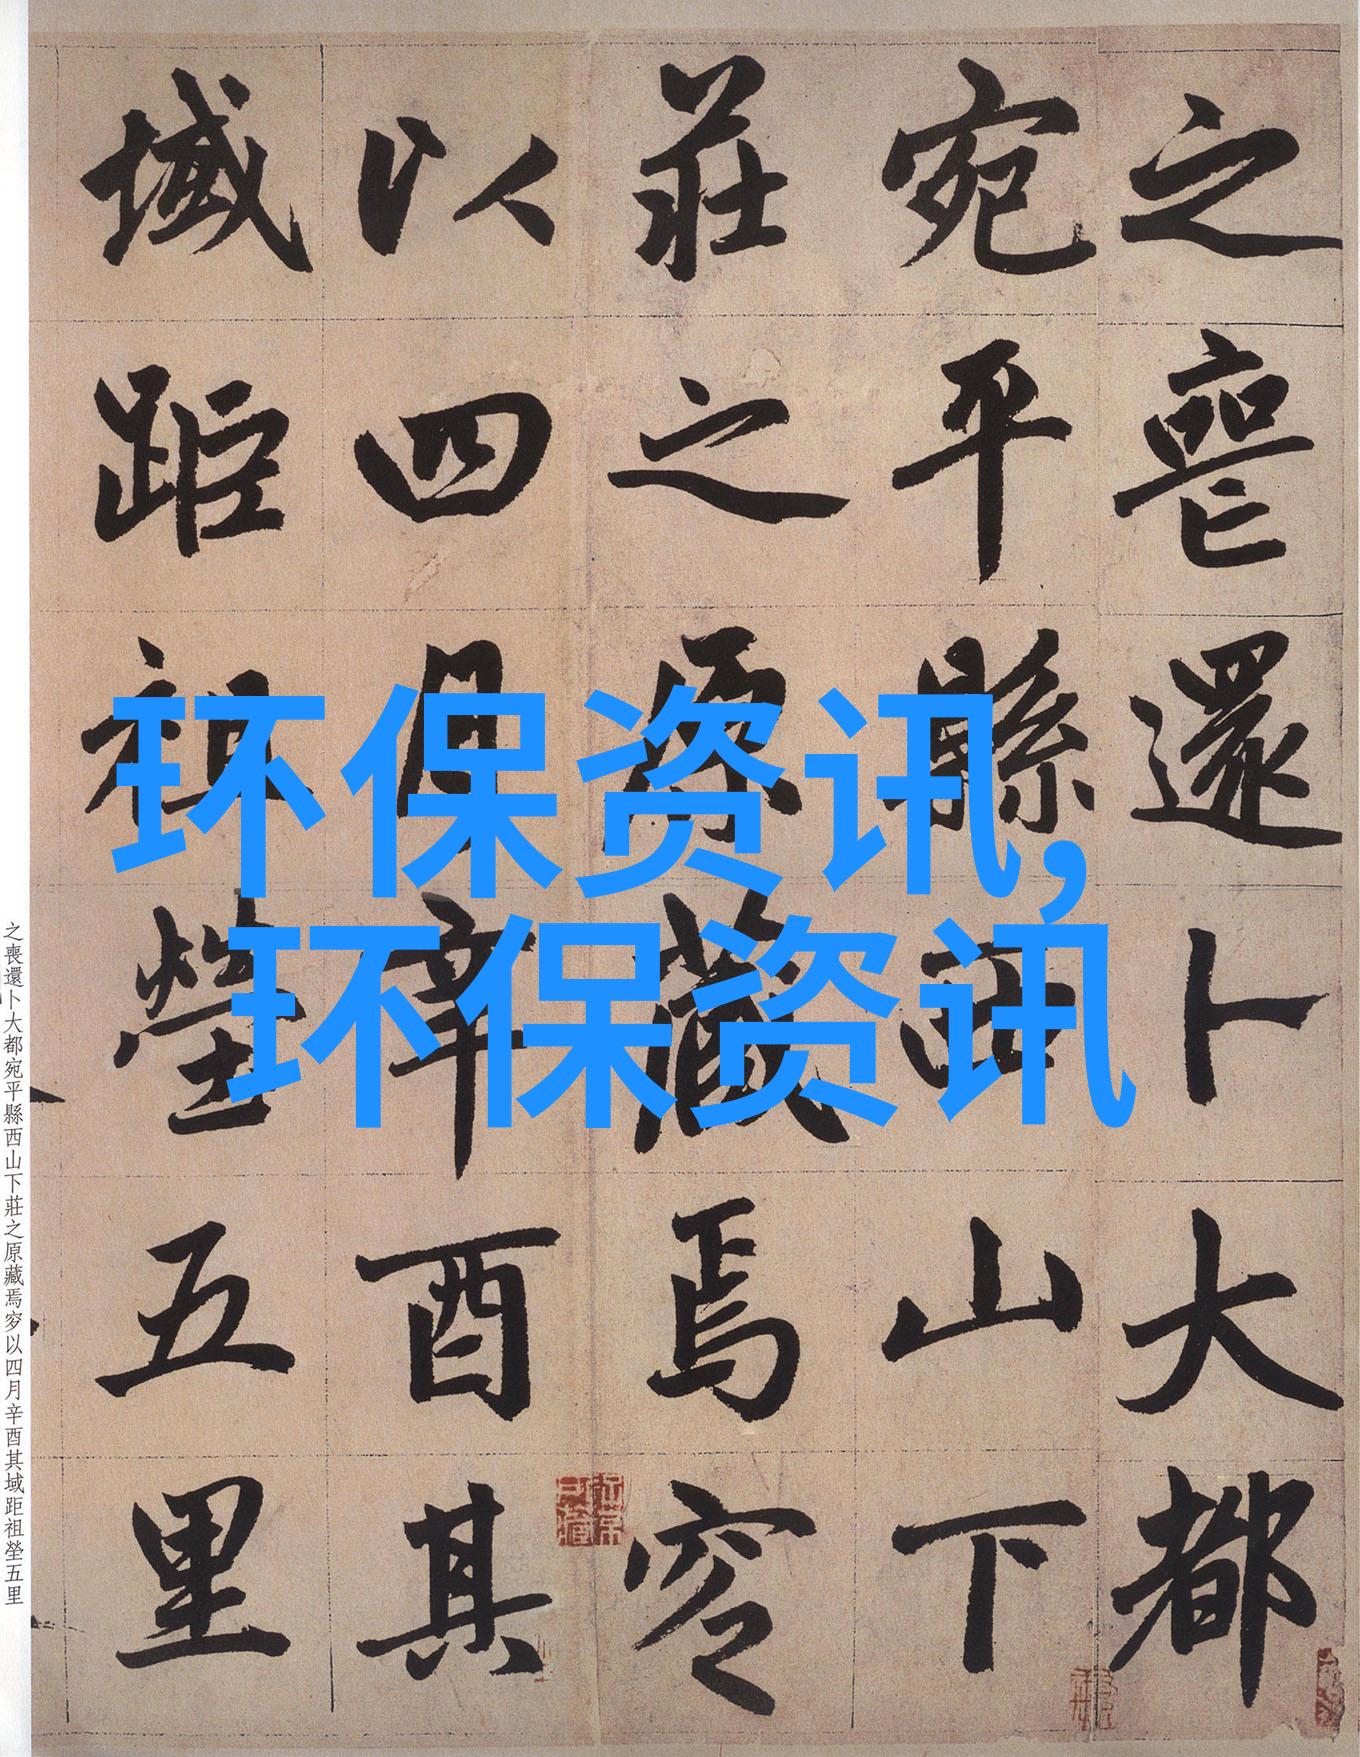 之喪還卜大都
宛平縣西山下
莊之原藏焉穸
以四月辛酉其
域距祖塋五里
环保资讯,
环保资讯
之喪還卜大都宛平縣西山下莊之原藏焉穸以四月辛酉其域距祖塋五里